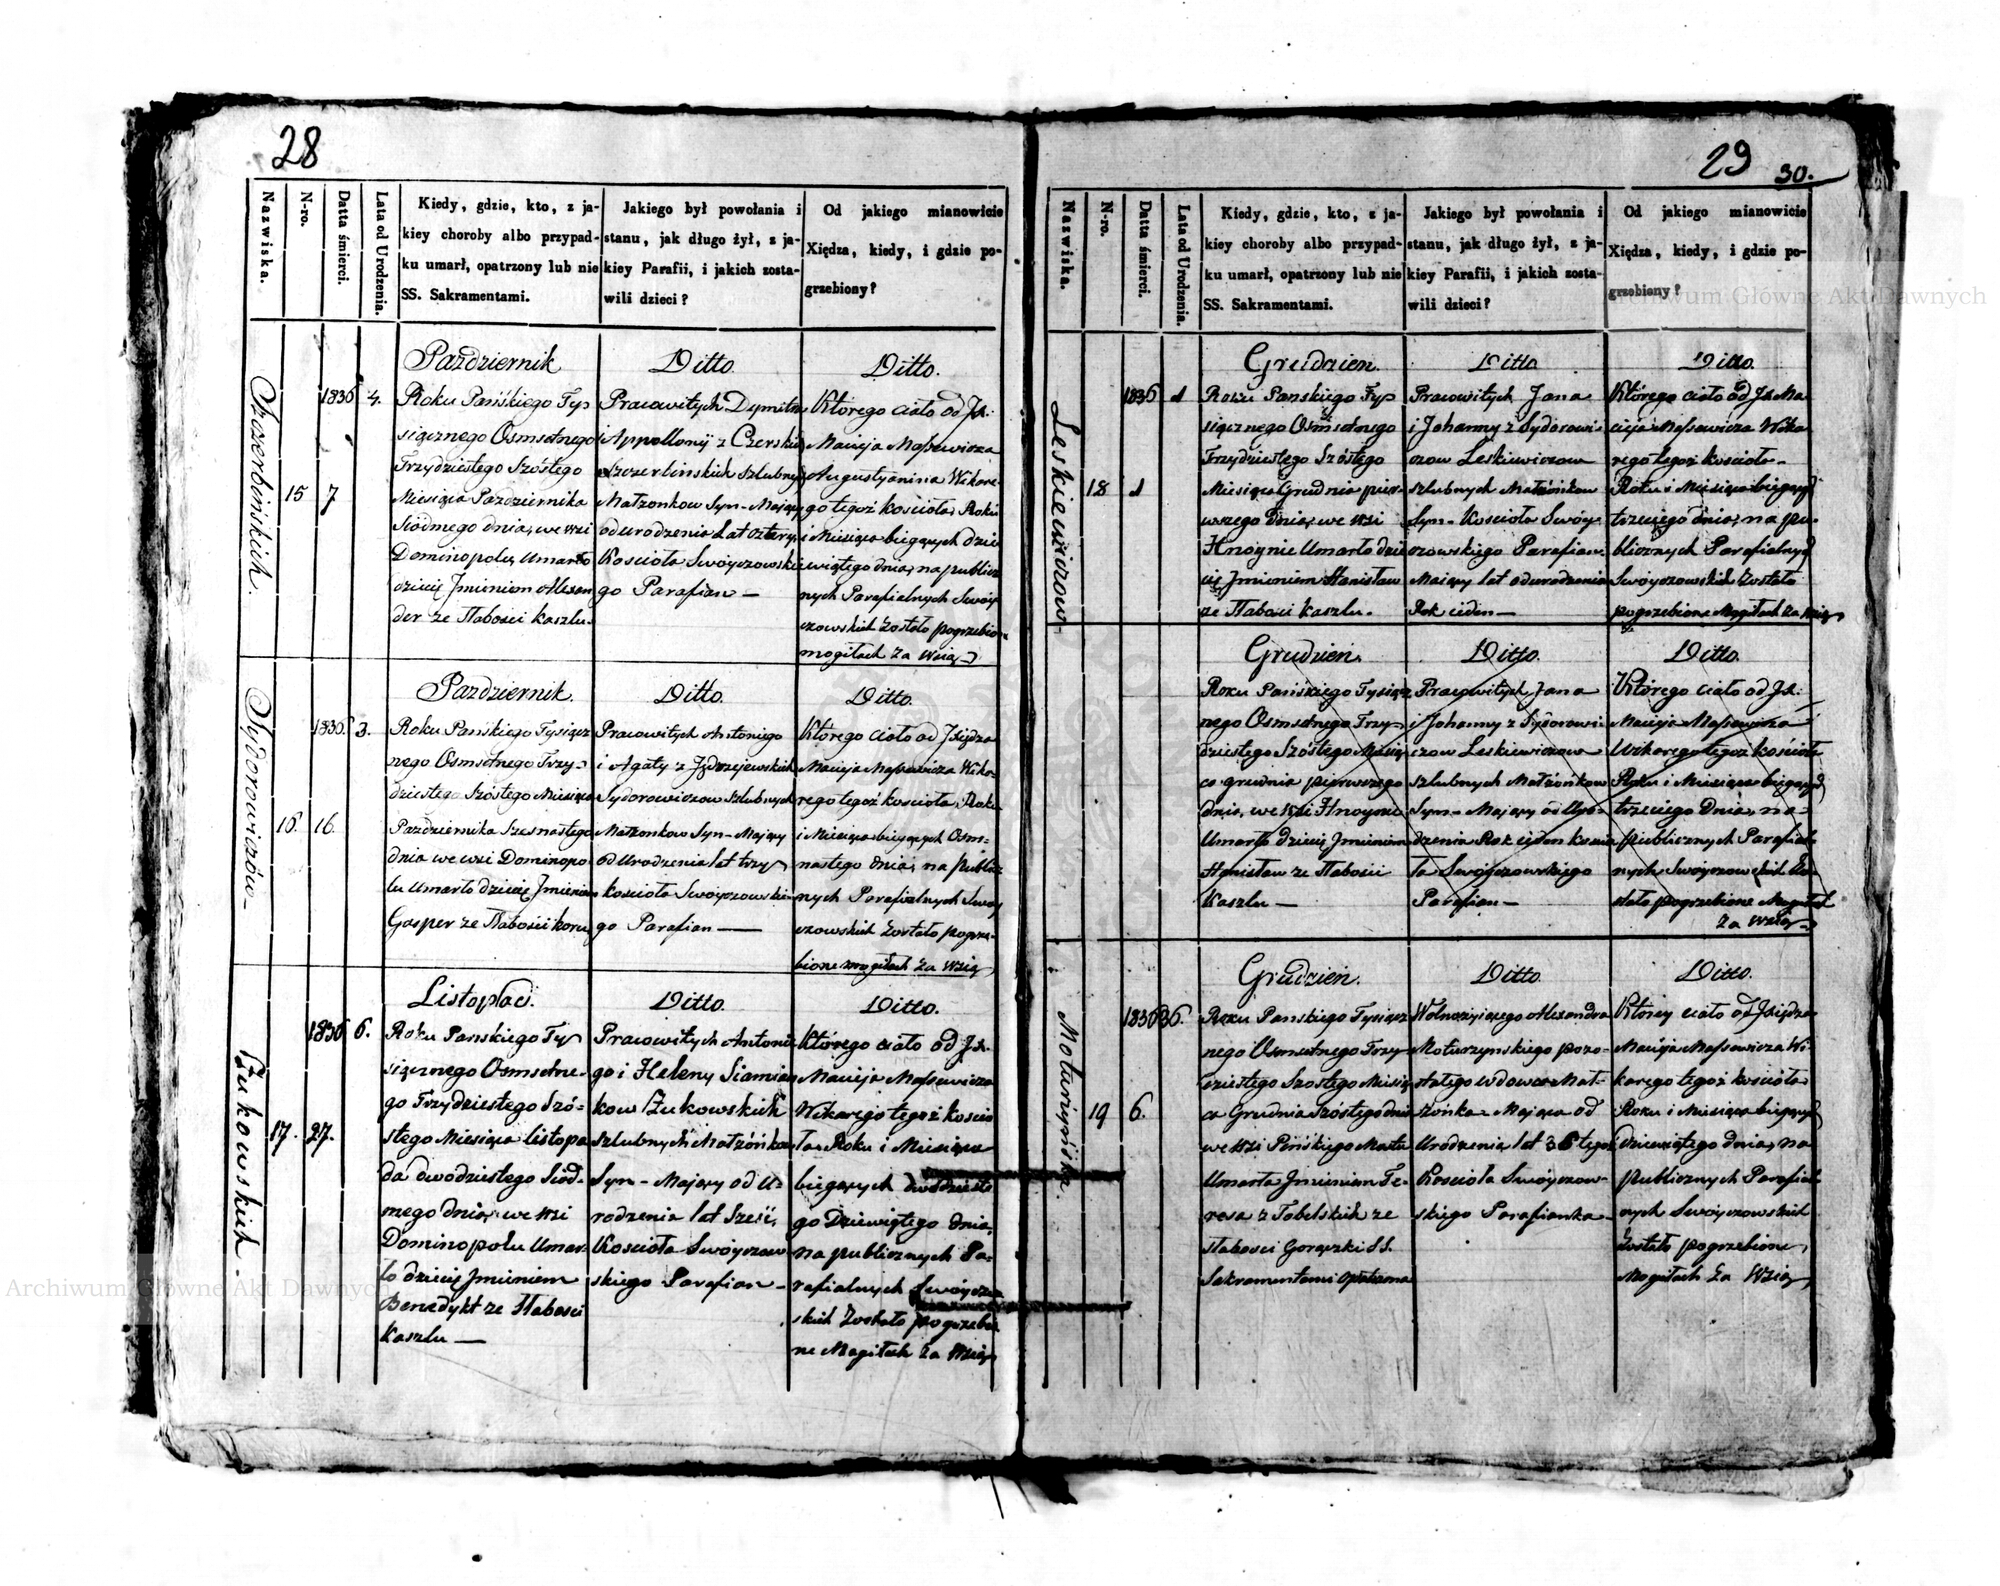 28
Nazwiska.
N-ro.
Datta śmierci.
Lata od Urodzenia.
Kiedy, gdzie, kto, z ja-
kiey choroby albo przypad-
ku umarł, opatrzony lub nie
SS. Sakramentami.
Jakiego był powołania i
stanu, jak długo żył, z ja-
kiey Parafii, i jakich zosta-
wili dzieci?
Od jakiego mianowicie
Xiędza, kiedy, i gdzie po-
grzebiony?
Szczerbińskich.
15
1836
7
4.
Pazdziernik
Roku Pańskiego Tyś
siącznego Osmsetnego
Trzydziestego Szóstego
Miesiąca Pazdziernika
Siódmego dnia, we wsi
Dominopolu Umarło
dziecię Jmieniem Alexan
der ze słabości kaszlu.
Ditto.
Pracowitych Dymitra
i Appollonij z Czerskich
Szczerbińskich szlubnych
Małżonkow Syn – Maiący
od urodzenia Lat cztery
Kościoła Swoyczowskie
go Parafian —
Ditto.
Którego ciało od JX.
Macieja Massewicza
Augustyanina Wikare
go tegoż kościoła, Roku
i Miesiąca bieżących dzie
wiątego dnia, na publicz
nych Parafialnych Swoy
czowskich zostało pogrzebio
mogiłach za Wsią
Sydorowiczów
16.
1836.
16.
3.
Pazdziernik.
Roku Pańskiego Tysiącz
nego Osmsetnego Trzy-
dziestego Szóstego Miesiąca
Pazdziernika Szesnastego
dnia we wsi Dominopo
lu Umarło dziecię Jmieniem
Gasper ze słabości koru
Ditto.
Pracowitych Antoniego
i Agaty z Jędrzejewskich
Sydorowiczow Szlubnych
Małżonkow Syn – Maiący
od Urodzenia lat trzy
kościoła Swoyczowskie
go Parafian —
Ditto.
Którego ciało od Xiędza
Macieja Massewicza Wika-
rego tegoż kościoła, Roku
i Miesiąca bieżących Osm-
nastego dnia, na publicz
nych Parafialnych Swoy
czowskich zostało pogrze-
bione mogiłach za Wsią
Żukowskich.
17.
1836
27.
6.
Listopad.
Roku Pańskiego Tyś
siącznego Osmsetne-
go Trzydziestego Szó-
stego Miesiąca listopa
da dwodziestego Siód-
mego dnia, we wsi
Dominopolu Umar-
ło dziecię Jmieniem
Benedykt ze słabości
kaszlu —
Ditto.
Pracowitych Antonie
go i Heleny Siamian
kow Żukowskich
szlubnych Małżónkow
Syn – Maiący od U-
rodzenia lat Sześć,
Kościoła Swoyczow-
skiego Parafian –
Ditto.
Którego ciało od JX.
Macieja Massewicza
Wikarego tegoż kościo
ła Roku i Miesiąca
bieżących dwodzieste
go Dziewiątego dnia,
na publicznych Pa-
rafialnych Swoyczo
skich zostało pogrzebio
ne Mogiłach za Wsią
29
30.
Nazwiska.
N-ro.
Datta śmierci.
Lata od Urodzenia.
Kiedy, gdzie, kto, z ja-
kiey choroby albo przypad-
ku umarł, opatrzony lub nie
SS. Sakramentami.
Jakiego był powołania i
stanu, jak długo żył, z ja-
kiey Parafii, i jakich zosta-
wili dzieci?
Od jakiego mianowicie
Xiędza, kiedy, i gdzie po-
grzebiony?
Leskiewiczow
18
1836
1
1
Grudzien.
Roku Panskiego Tyś
siącznego Osmsetnego
Trzydziestego Szóstego
Miesiąca Grudnia pier-
wszego dnia, we wsi
Hnoynie Umarło dzie
cię Jmieniem Stanisław
ze słabości kaszlu.
Ditto
Pracowitych Jana
i Johanny z Sydorowi-
czow Leskiewiczow
szlubnych Małżónkow
Syn – Kościoła Swoy-
czowskiego Parafian
Maiący lat od urodzenia
Rok ieden —
Ditto.
Którego ciało od JX. Ma
cieja Massewicza Wika
rego tegoż kościoła –
Roku i Miesiąca bieżących
trzeciego dnia, na pu-
blicznych Parafialnych
Swoyczowskich zostało
pogrzebione Mogiłach za Wsią
Grudzien.
Roku Pańskiego Tysiącz
nego Osmsetnego Trzy
dziestego Szóstego Miesią
ca grudnia pierwszego
dnia, we wsi Hnoynie
Umarło dziecię Jmieniem
Stanisław ze słabości
Kaszlu —
Ditto.
Pracowitych Jana
i Johanny z Sydorowi-
czow Leskiewiczow
szlubnych Małżónkow
Syn – Maiący od Uro-
dzenia Rok ieden kościo
ła Swoyczowskiego
Parafian —
Ditto.
Którego ciało od JX.
Macieja Massewicza
Wikarego tegoż kościoła
Roku i Miesiąca bieżących
trzeciego Dnia, na
publicznych Parafial
nych Swoyczowskich Zo-
stało pogrzebione Mogiłach
za Wsią
19
1836
6.
36.
Grudzień.
Roku Panskiego Tysiącz
nego Osmsetnego Trzy
dziestego Szostego Miesią
ca Grudnia Szóstego dnia
Umarła Jmieniem Te-
resa z Tobelskich ze
słabości Gorączki SS.
Sakramentami Opatrzona
Ditto.
Wolnożyiącego Alexandra
Moturzynskiego pozo-
stałego wdowca Mał-
żonka – Maiąca od
Urodzenia lat 36 tegoż
Kościoła Swoyczow-
skiego Parafianka
Ditto.
Ktorey ciało od Xiędza
Macieja Massewicza Wi-
karego tegoż kościoła
Roku i Miesiąca bieżących
dziewiątego dnia, na
publicznych Parafial
nych Swoyczowskich
Zostało pogrzebione,
Mogiłach za Wsią
Archiwum Główne Akt Dawnych
Archiwum Główne Akt Dawnych